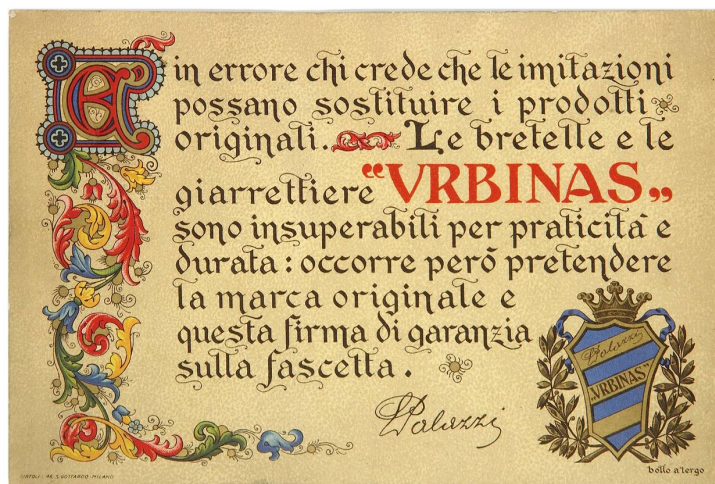 È in errore chi crede che le imitazioni
possano sostituire i prodotti
originali. Le bretelle e le
giarrettiere “VRBINAS„
sono insuperabili per praticità e
durata: occorre però pretendere
la marca originale e
questa firma di garanzia
sulla fascetta.
LPalazzi
LPalazzi
„VRBINAS"
bollo a tergo
S. GOTTARDO - MILANO